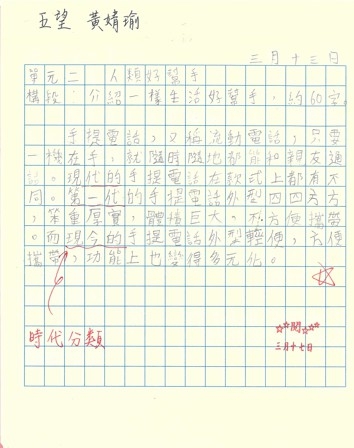 五望 黃婧瑜
三月十三日
單元二 人類好幫手
構段：介紹一樣生活好幫手，約60字。
手提電話，又稱流動電話，只要
一機在手，就隨時隨地都能和親友通
話。現代的手提電話在款式上都有不
同。第一代的手提電話外型四四方方
，笨重厚實，體積巨大，不方便攜帶
。而現今的手提電話外型輕便，方便
攜帶，功能上也變得多元化。
時代分類
閱
三月十七日